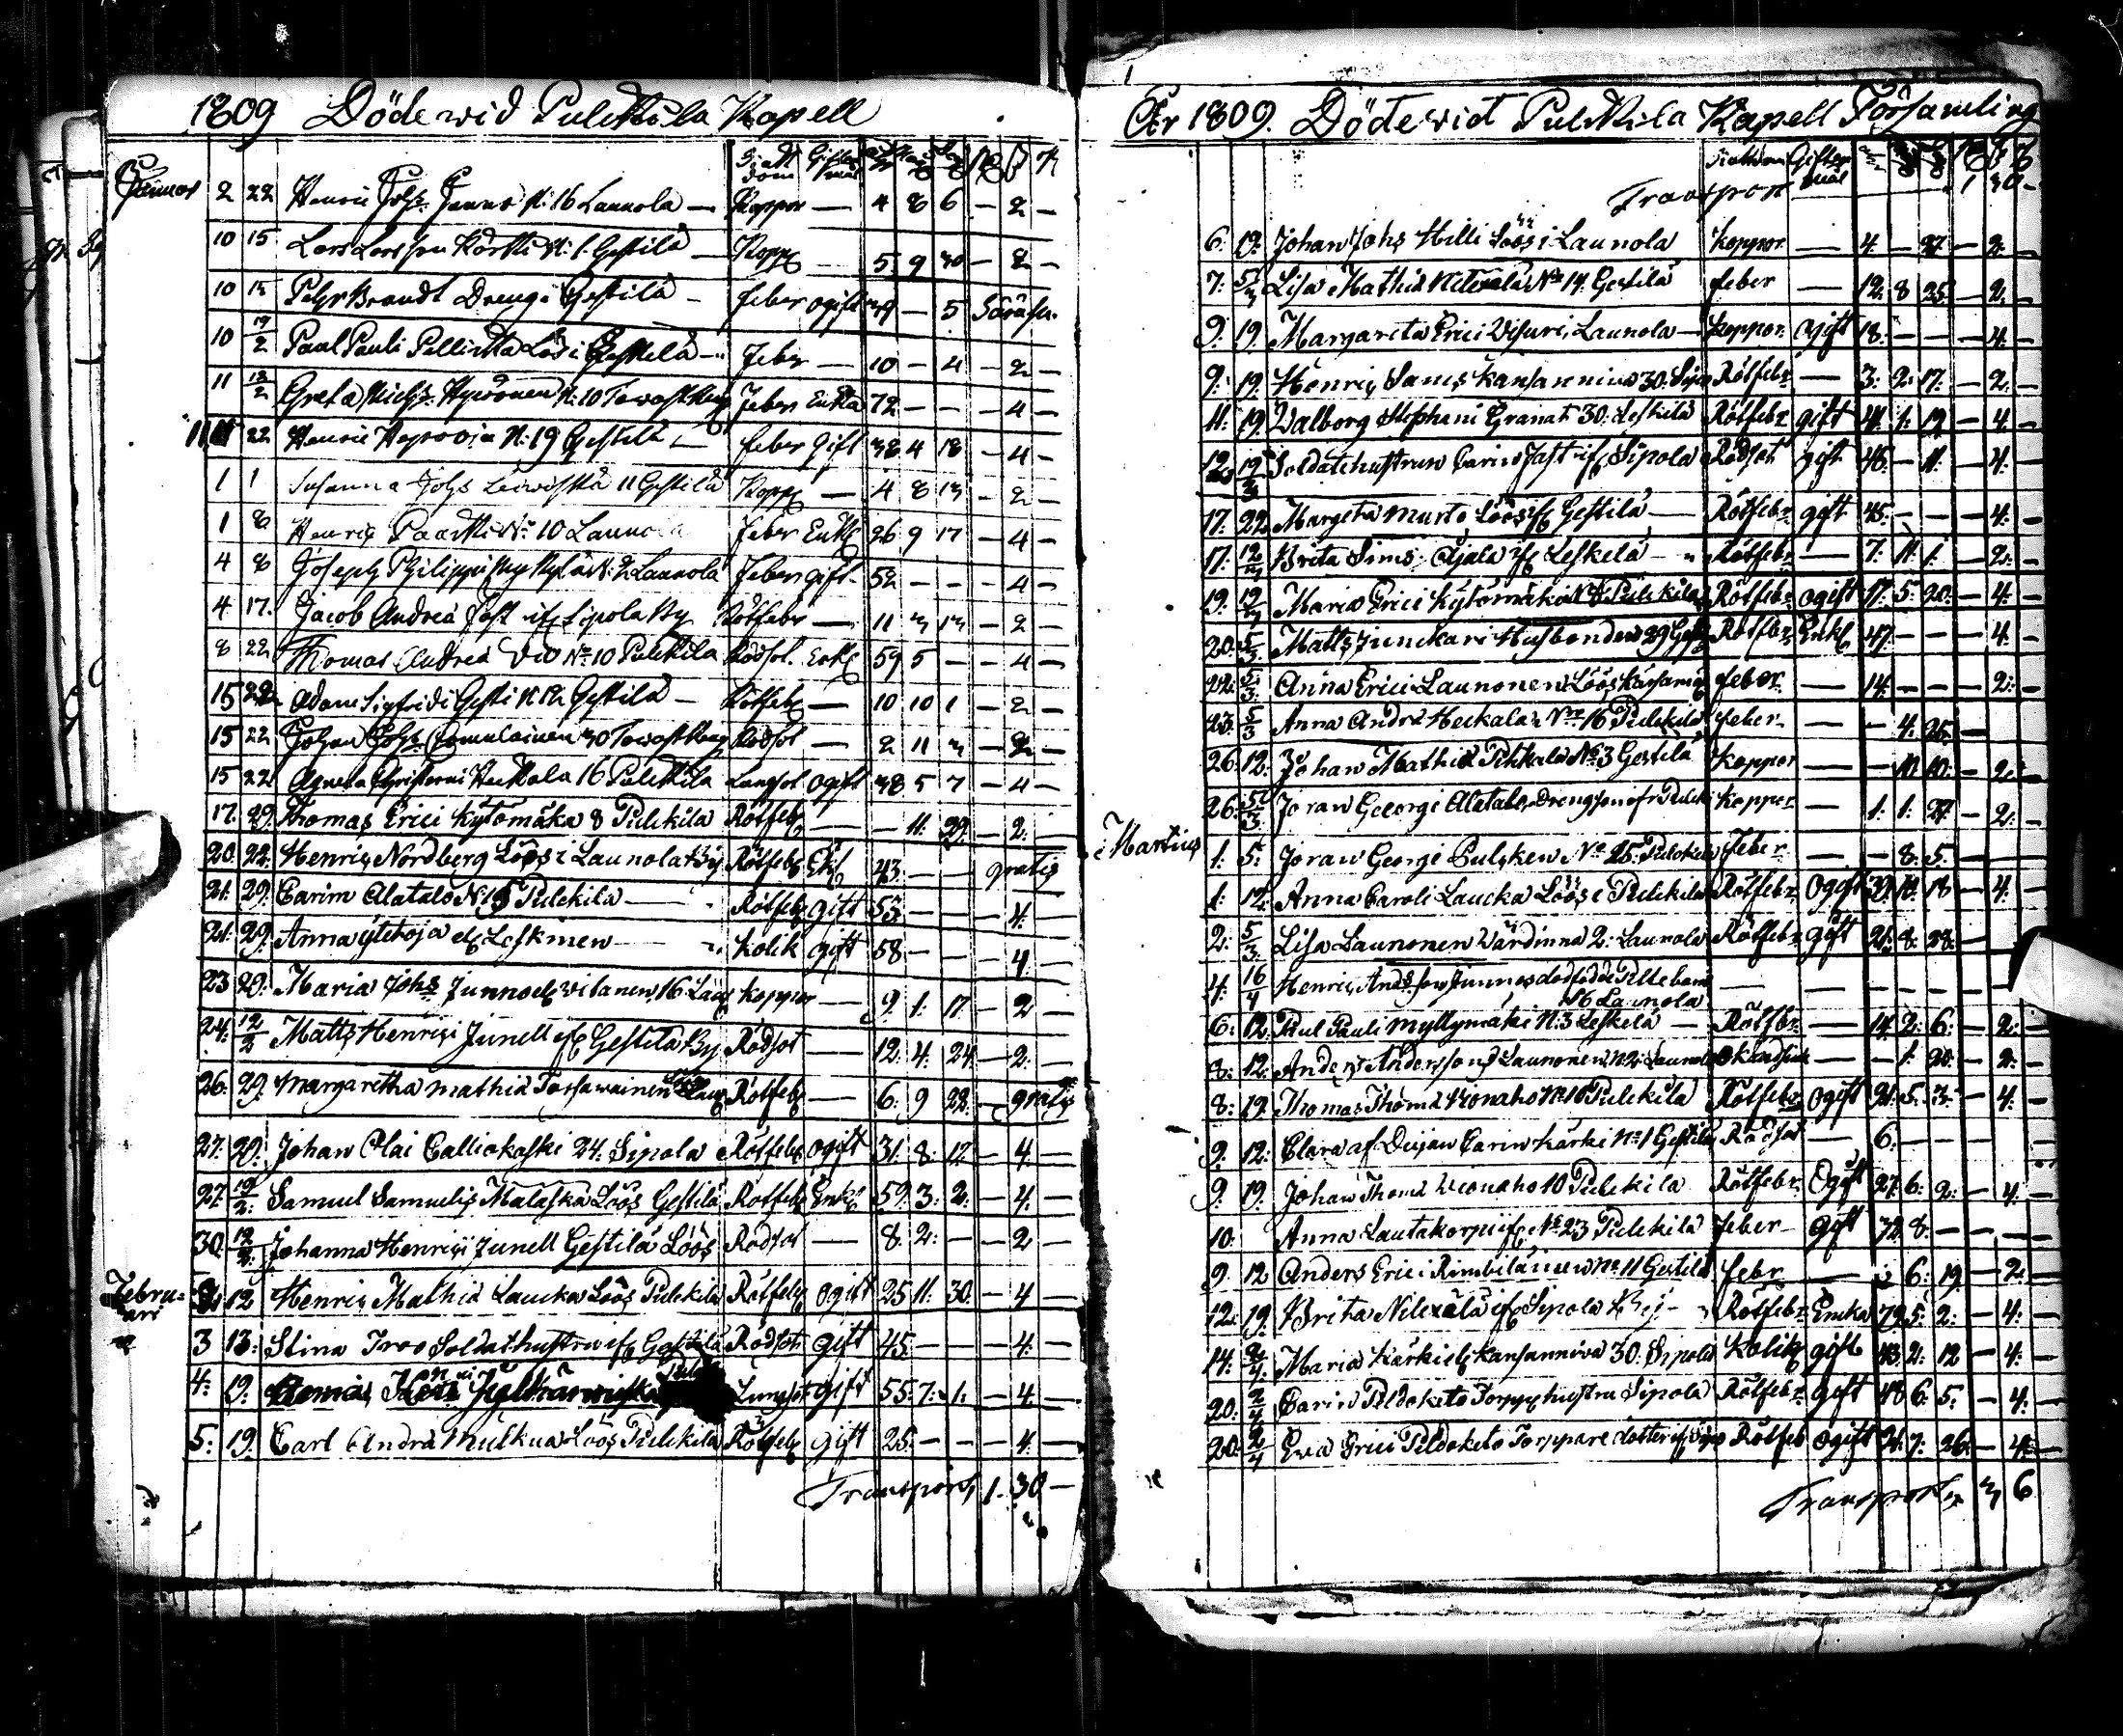 1809 Döde wid Pulkkila Kapell
Januar 2 22 Henric Johs Junno N: 16 Launola — Koppor — 4 8 6 — 2 —
10 15 Lars Larsson Kärkki N: 1 Gestilä — Kopp — 5 9 30 — 2 —
10 15 Pehr Brandt Dreng i Gestilä — feber ogift 39 — 5
10 19/2 Paul Pauli Pellikka Lös i Gestilä — feber — 10 — 4 — 2 —
11 12/2 Greta Michs N: 10 feber Enka 72 — — — 4 —
11 22 Henric N: 19 Gestilä — feber Gift 38 4 18 — 4 —
1 1 Susanna Johs Leiwiskä 11 Gestilä Kopp — 4 8 13 — 2 —
1 8 Henric Paarkki No 10 Launola feber Enkl 26 9 17 — 4 —
4 8 Joseph Philippi N: 2 Launola feber gift 52 — — — 4 —
4 17. Jacob Andreä Fast if Sipola By Rötfeber — 11 3 13 — 2 —
8 22 Thomas Andreä No 10 Pulkkila Rödsot. Enkl 59 5 — — 4 —
15 22 Adam Sigfridi Gesti N 12 Gestilä — Rötfeb — 10 10 1 — 2 —
15 22 Johan Johs 30 Rödsot — 2 11 3 — 2 —
15 22 Agneta Christerni Heikkala 16 Pulkkila Lungsot ogift 38 5 7 — 4 —
17. 29. Thomas Erici Kytömäka 8 Pulkkila Rötfeb — — 11. 29. — 2. —
20. 22. Henric Nordberg Löös i Launola By Rötfeb Ekl 43 — — gratis
21. 29. Carin Alatalo N: 15 Pulkkila — Rötfeb gift 53 — — — 4. —
21. 29. Anna ylikoja ef Leskinen — kolik gift 58 — — — 4 —
23 29. Maria Johs Junno ef wilanen 16 Lau koppor — 9. 1. 17 — 2 —
24. 12/2 Matts Henrici Junell if Gestilä By Rödsot — 12. 4. 24 — 2. —
26. 29. Margaretha Mathiä Rötfeb — 6. 9 22. — gratis
27. 29. Johan Olai Calliokoski 24. Sipola Rötfeb ogift 31. 8. 12 — 4. —
27. 19/2. Samuel Samuelis Malaska Löös Gestilä Rötfeb Enkl 59. 3. 2. — 4. —
30. 12/2. Johanna Henrici Junell Gestilä Löös Rödsot — 8. 2. — — 2 —
Februari 12 Henric Mathiä Laucka Löös Pulkkila Rötfeb ogift 25 11. 30. — 4 —
3 13. Stina Iroo Soldat hustru if Gestilä Rödsot gift 45 — — — 4. —
4. 19. Lungsot gift 55. 7. 1. — 4. —
5. 19. Carl Andreä Mulkua Löös Pulkkila Rötfeb gift 25. — — — 4. —
Transport 1. 30 —
År 1809. Döde vid Pulkkila Kapell Församling
Transport 1 30 —
6. 19. Johan Johs Hilli Löös i Launola Koppor — 4. — 27 — 2.
7. 5/3 Lisa Mathiä Nilexelä No 19. Gestilä feber — 12. 8 25 — 2. —
9. 19. Margareta Erici Visuri Launola — Koppor. ogift 18. — — — 4. —
9. 19. Henric Sams Kansanniva 30. Sipo Rötfebr — 3. 2. 17. — 2. —
11. 19. Walborg Stephani Granat 30. Leskelä Rötfebr gift 41. 1. 19 — 4. —
12. 19/3 Soldatehustrun Carin Fast if Sipola Rödsot gift 45. — 11. — 4. —
17. 22. Margeta Murto Löös if Gestilä — Rötfebr gift 45. — — — 4. —
17. 12/3 Brita Sims. Ojala if Leskelä — Rötfebr — 7. 11. 1. — 2. —
19. 12/3 Maria Erici Kytömäka N 8 Pulkkila Rötfebr ogift 17. 5. 20. — 4. —
20. 5/3 Matts Junckari Husbonden 29 Gest Rötfebr Enkl 47. — — — 4. —
22. 5/3 Anna Erici Launonen Löös feber — 14. — — — 2. —
23. 5/3 Anna Andrä Heckala No 16 Pulkkila feber — — 4. 25.
26. 12. Johan Mathiä Pihkala No 3 Gestilä Koppor — — 10. 10. — 2. —
26. 5/3 Joran Georgi Alatalo, Drengson if Pulki Koppor — 1. 1. 27. — 2. —
Martius 1. 5. Joran Georgi Pulcken No 25. Pulckila feber — — 8. 5. —
1. 12. Anna Caroli Laucka Löös i Pulkkila Rötfebr Ogift 39. 10. 18 — 4. —
2. 5/3 Lisa Launonen Värdinna 2. Launola Rötfebr gift 21. 8. 28. —
4. 16/4 Henric Ands son Junnos dödfödde Pilkebarn
16 Launola — — — — —
6. 12. Paul Pauli Myllymäki N. 3 Leskelä — Rötfbr — 14. 2. 6. — 2. —
8. 12. Anders Andersson Launonen N. 2. Launola — — 1. 20. — 2. —
8. 19. Thomas Thomä Wionaho No 10 Pulkkila Rötfebr Ogift 21. 5. 3. — 4. —
9. 12. Clara af Pigan Carin Kärki No 1 Gestilä Rödsot — 6. — — —
9. 19. Johan Thomä Wionaho 10 Pulkkila Rötfebr Ogift 27. 6. 2. — 4. —
10. Anna Lautakorpi if No 23 Pulkkila feber — Gift 32 8. — — —
9. 12 Anders Erici Rimbiläinen No 11 Gestilä febr — 6. 19. — 2. —
12. 19. Brita Nilexälä if Sipola By — Rötfebr Encka 79. 5. 2. — 4. —
14. 2/4. Maria Kärki ef Kansanniva 30. Sipola Kolik gift 43. 2. 12 — 4. —
20. 2/4 Carin Peldoketo Torpp hustru Sipola Rötfebr gift 48 6. 5. — 4. —
20. 2/4 Eva Erici Peldoketo Torppare dotter if Sipo Rötfeb ogift 21. 7. 26. — 4. —
Transport 3 6